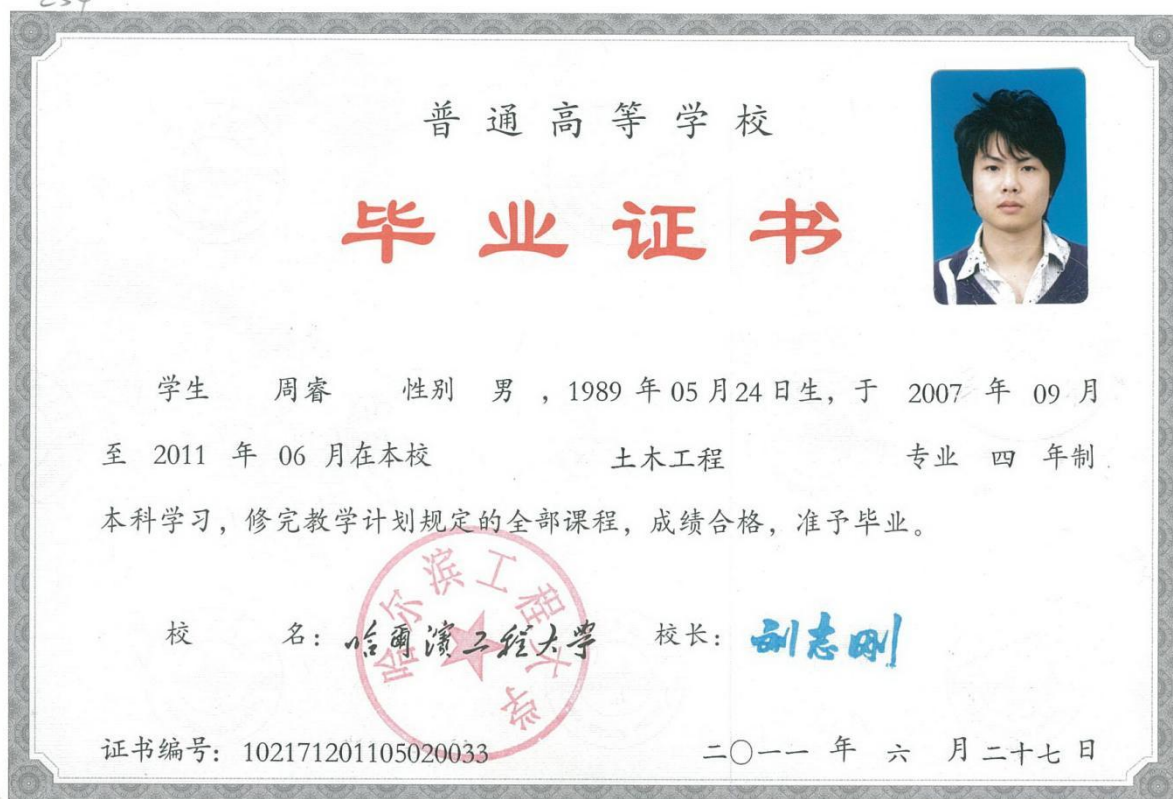 普通高等学校
毕业证书
学生 周睿 性别 男 ，1989 年 05 月 24 日生，于 2007 年 09 月
至 2011 年 06 月在本校 土木工程 专业 四 年制
本科学习，修完教学计划规定的全部课程，成绩合格，准予毕业。
哈尔滨工程大学
校 名：哈爾濱工程大学 校长：刘志刚
证书编号：102171201105020033 二〇一一 年 六 月二十七 日